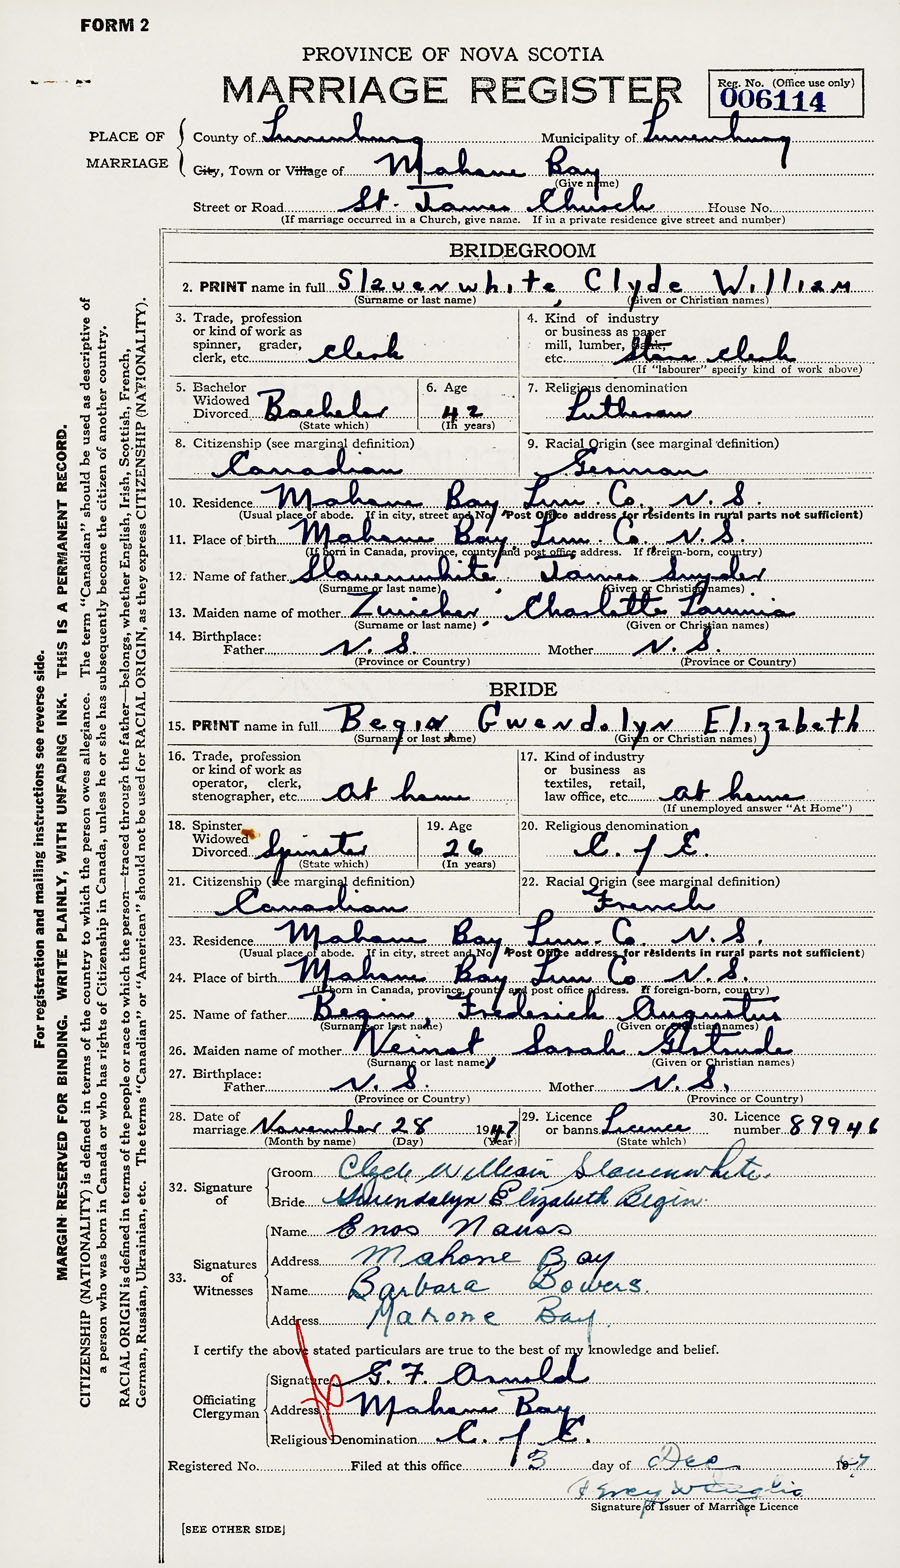 FORM 2
PROVINCE OF NOVA SCOTIA
MARRIAGE REGISTER
Reg. No. (Office use only)
006114
PLACE OF MARRIAGE
County of Lunenburg Municipality of Lunenburg
City, Town or Village of Mahone Bay
(Give name)
Street or Road St. James Church House No.
(If marriage occurred in a Church, give name. If in a private residence give street and number)
BRIDEGROOM
2. PRINT name in full Slauenwhite, Clyde William
(Surname or last name) (Given or Christian names)
3. Trade, profession or kind of work as spinner, grader, clerk, etc. Clerk
4. Kind of industry or business as paper mill, lumber, bank, etc. Store Clerk
(If "labourer" specify kind of work above)
5. Bachelor Widowed Divorced Bachelor
(State which)
6. Age 42
(In years)
7. Religious denomination Lutheran
8. Citizenship (see marginal definition) Canadian
9. Racial Origin (see marginal definition) German
10. Residence Mahone Bay Lun. Co. N.S.
(Usual place of abode. If in city, street and No. Post Office address for residents in rural parts not sufficient)
11. Place of birth Mahone Bay, Lun. Co. N.S.
(If born in Canada, province, county and post office address. If foreign-born, country)
12. Name of father Slauenwhite, James Snyder
(Surname or last name) (Given or Christian names)
13. Maiden name of mother Zwicker, Charlotte
(Surname or last name) (Given or Christian names)
14. Birthplace: Father N.S. Mother N.S.
(Province or Country) (Province or Country)
BRIDE
15. PRINT name in full Begin, Gwendolyn Elizabeth
(Surname or last name) (Given or Christian names)
16. Trade, profession or kind of work as operator, clerk, stenographer, etc. at home
17. Kind of industry or business as textiles, retail, law office, etc. at home
(If unemployed answer "At Home")
18. Spinster Widowed Divorced Spinster
(State which)
19. Age 26
(In years)
20. Religious denomination C. of E.
21. Citizenship (see marginal definition) Canadian
22. Racial Origin (see marginal definition) French
23. Residence Mahone Bay, Lun. Co. N.S.
(Usual place of abode. If in city, street and No. Post Office address for residents in rural parts not sufficient)
24. Place of birth Mahone Bay Lun Co N.S.
(If born in Canada, province, county and post office address. If foreign-born, country)
25. Name of father Begin, Frederick Augustus
(Surname or last name) (Given or Christian names)
26. Maiden name of mother Veinot, Sarah Gertrude
(Surname or last name) (Given or Christian names)
27. Birthplace: Father N.S. Mother N.S.
(Province or Country) (Province or Country)
28. Date of marriage November 28 1947
(Month by name) (Day) (Year)
29. Licence or banns Licence
(State which)
30. Licence number 89946
32. Signature of
Groom Clyde William Slauenwhite
Bride Gwendolyn Elizabeth Begin
33. Signatures of Witnesses
Name Enos Nauss
Address Mahone Bay
Name Barbara Bowers.
Address Mahone Bay.
I certify the above stated particulars are true to the best of my knowledge and belief.
Officiating Clergyman
Signature G. F. Arnold
Address Mahone Bay
Religious Denomination C. of E.
Registered No. Filed at this office 3 day of Dec. 1947
Signature of Issuer of Marriage Licence
[SEE OTHER SIDE]
For registration and mailing instructions see reverse side.
MARGIN RESERVED FOR BINDING. WRITE PLAINLY, WITH UNFADING INK. THIS IS A PERMANENT RECORD.
CITIZENSHIP (NATIONALITY) is defined in terms of the country to which the person owes allegiance. The term "Canadian" should be used as descriptive of
a person who was born in Canada or who has rights of Citizenship in Canada, unless he or she has subsequently become the citizen of another country.
RACIAL ORIGIN is defined in terms of the people or race to which the person—traced through the father—belongs, whether English, Irish, Scottish, French,
German, Russian, Ukrainian, etc. The terms "Canadian" or "American" should not be used for RACIAL ORIGIN, as they express CITIZENSHIP (NATIONALITY).